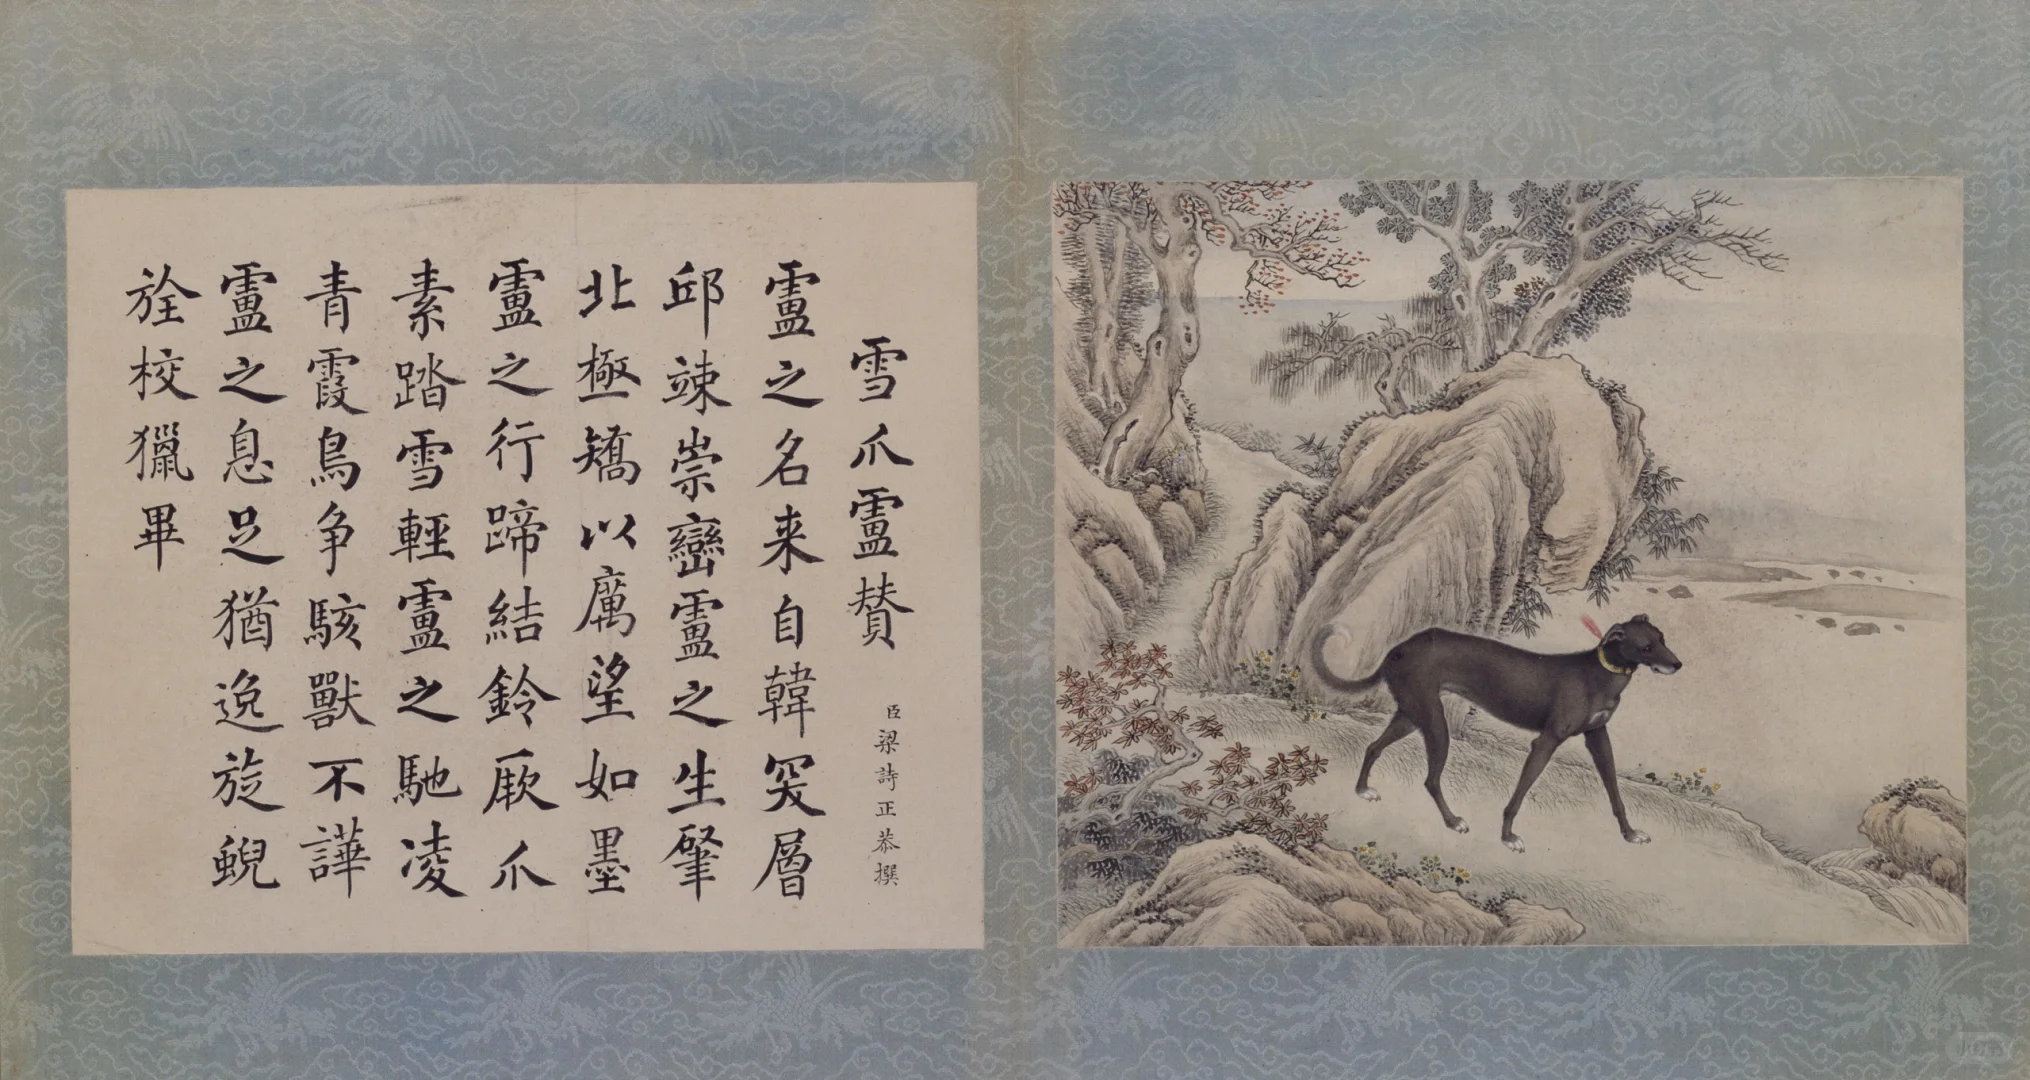 雪爪盧贊
臣梁詩正恭撰
盧之名来自韓突層
邱竦崇巒盧之生肇
北極矯以厲望如墨
盧之行蹄結鈴厥爪
素踏雪輕盧之馳凌
青霞鳥争駭獸不譁
盧之息足猶逸旋蜺
旌校獵畢